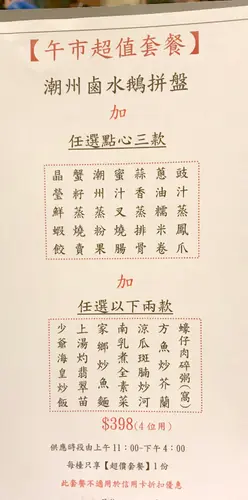 【午市超值套餐】
潮州鹵水鵝拼盤
加
任選點心三款
豉汁蒸鳳爪
蔥油糯米卷
蒜香蒸排骨
蜜汁叉燒腸
潮州蒸粉果
蟹籽蒸燒賣
晶瑩鮮蝦餃
加
任選以下兩款
蠔仔肉碎粥(窩)
方魚炒芥蘭
涼瓜斑腩炒河
南乳煮全素菜
家鄉炒魚麵
上湯灼翡翠苗
少爺海皇炒飯
$398(4位用)
供應時段由上午11:00-下午4:00
每檯只享【超價套餐】1份
此套餐不適用於信用卡折扣優惠